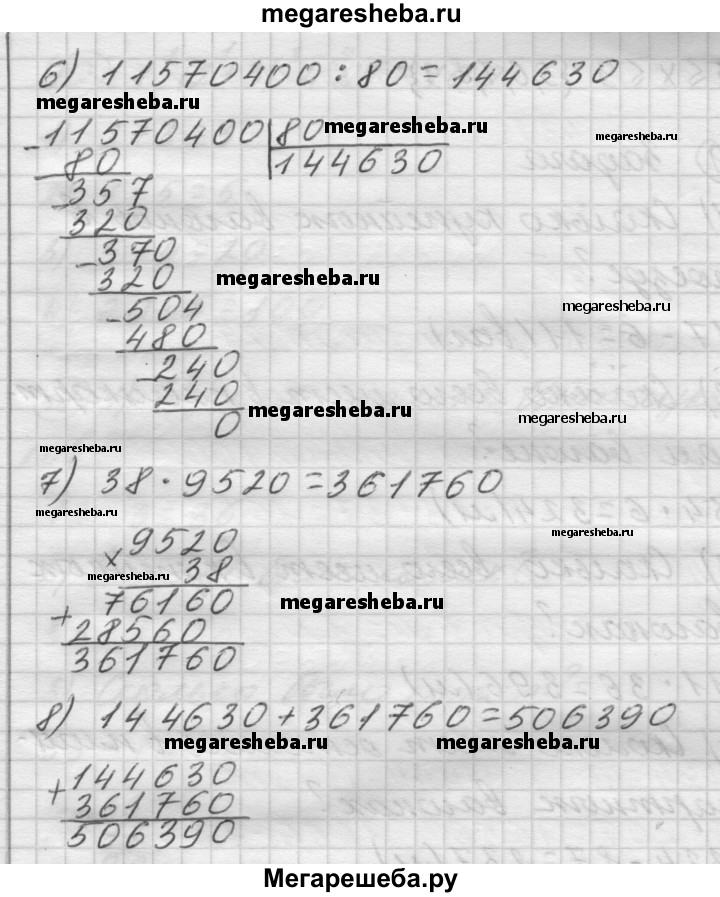 megaresheba.ru
6) 11570400 : 80 = 144630
megaresheba.ru
- 11570400 | 80 megaresheba.ru
megaresheba.ru
80 144630
- 357
320
- 370
320 megaresheba.ru
megaresheba.ru
- 504
480
- 240
240 megaresheba.ru
megaresheba.ru
0
megaresheba.ru
7) 38 · 9520 = 361760
megaresheba.ru
megaresheba.ru
× 9520
38
megaresheba.ru
+ 76160 megaresheba.ru
28560
361760
8) 144630 + 361760 = 506390
megaresheba.ru megaresheba.ru
+ 144630
361760
506390
Мегарешеба.ру